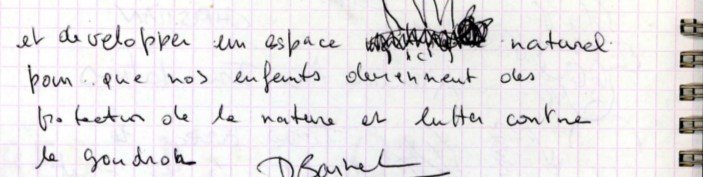 et developper un espace naturel
pour que nos enfants deviennent des
protecteur de la nature et lutter contre
le goudron